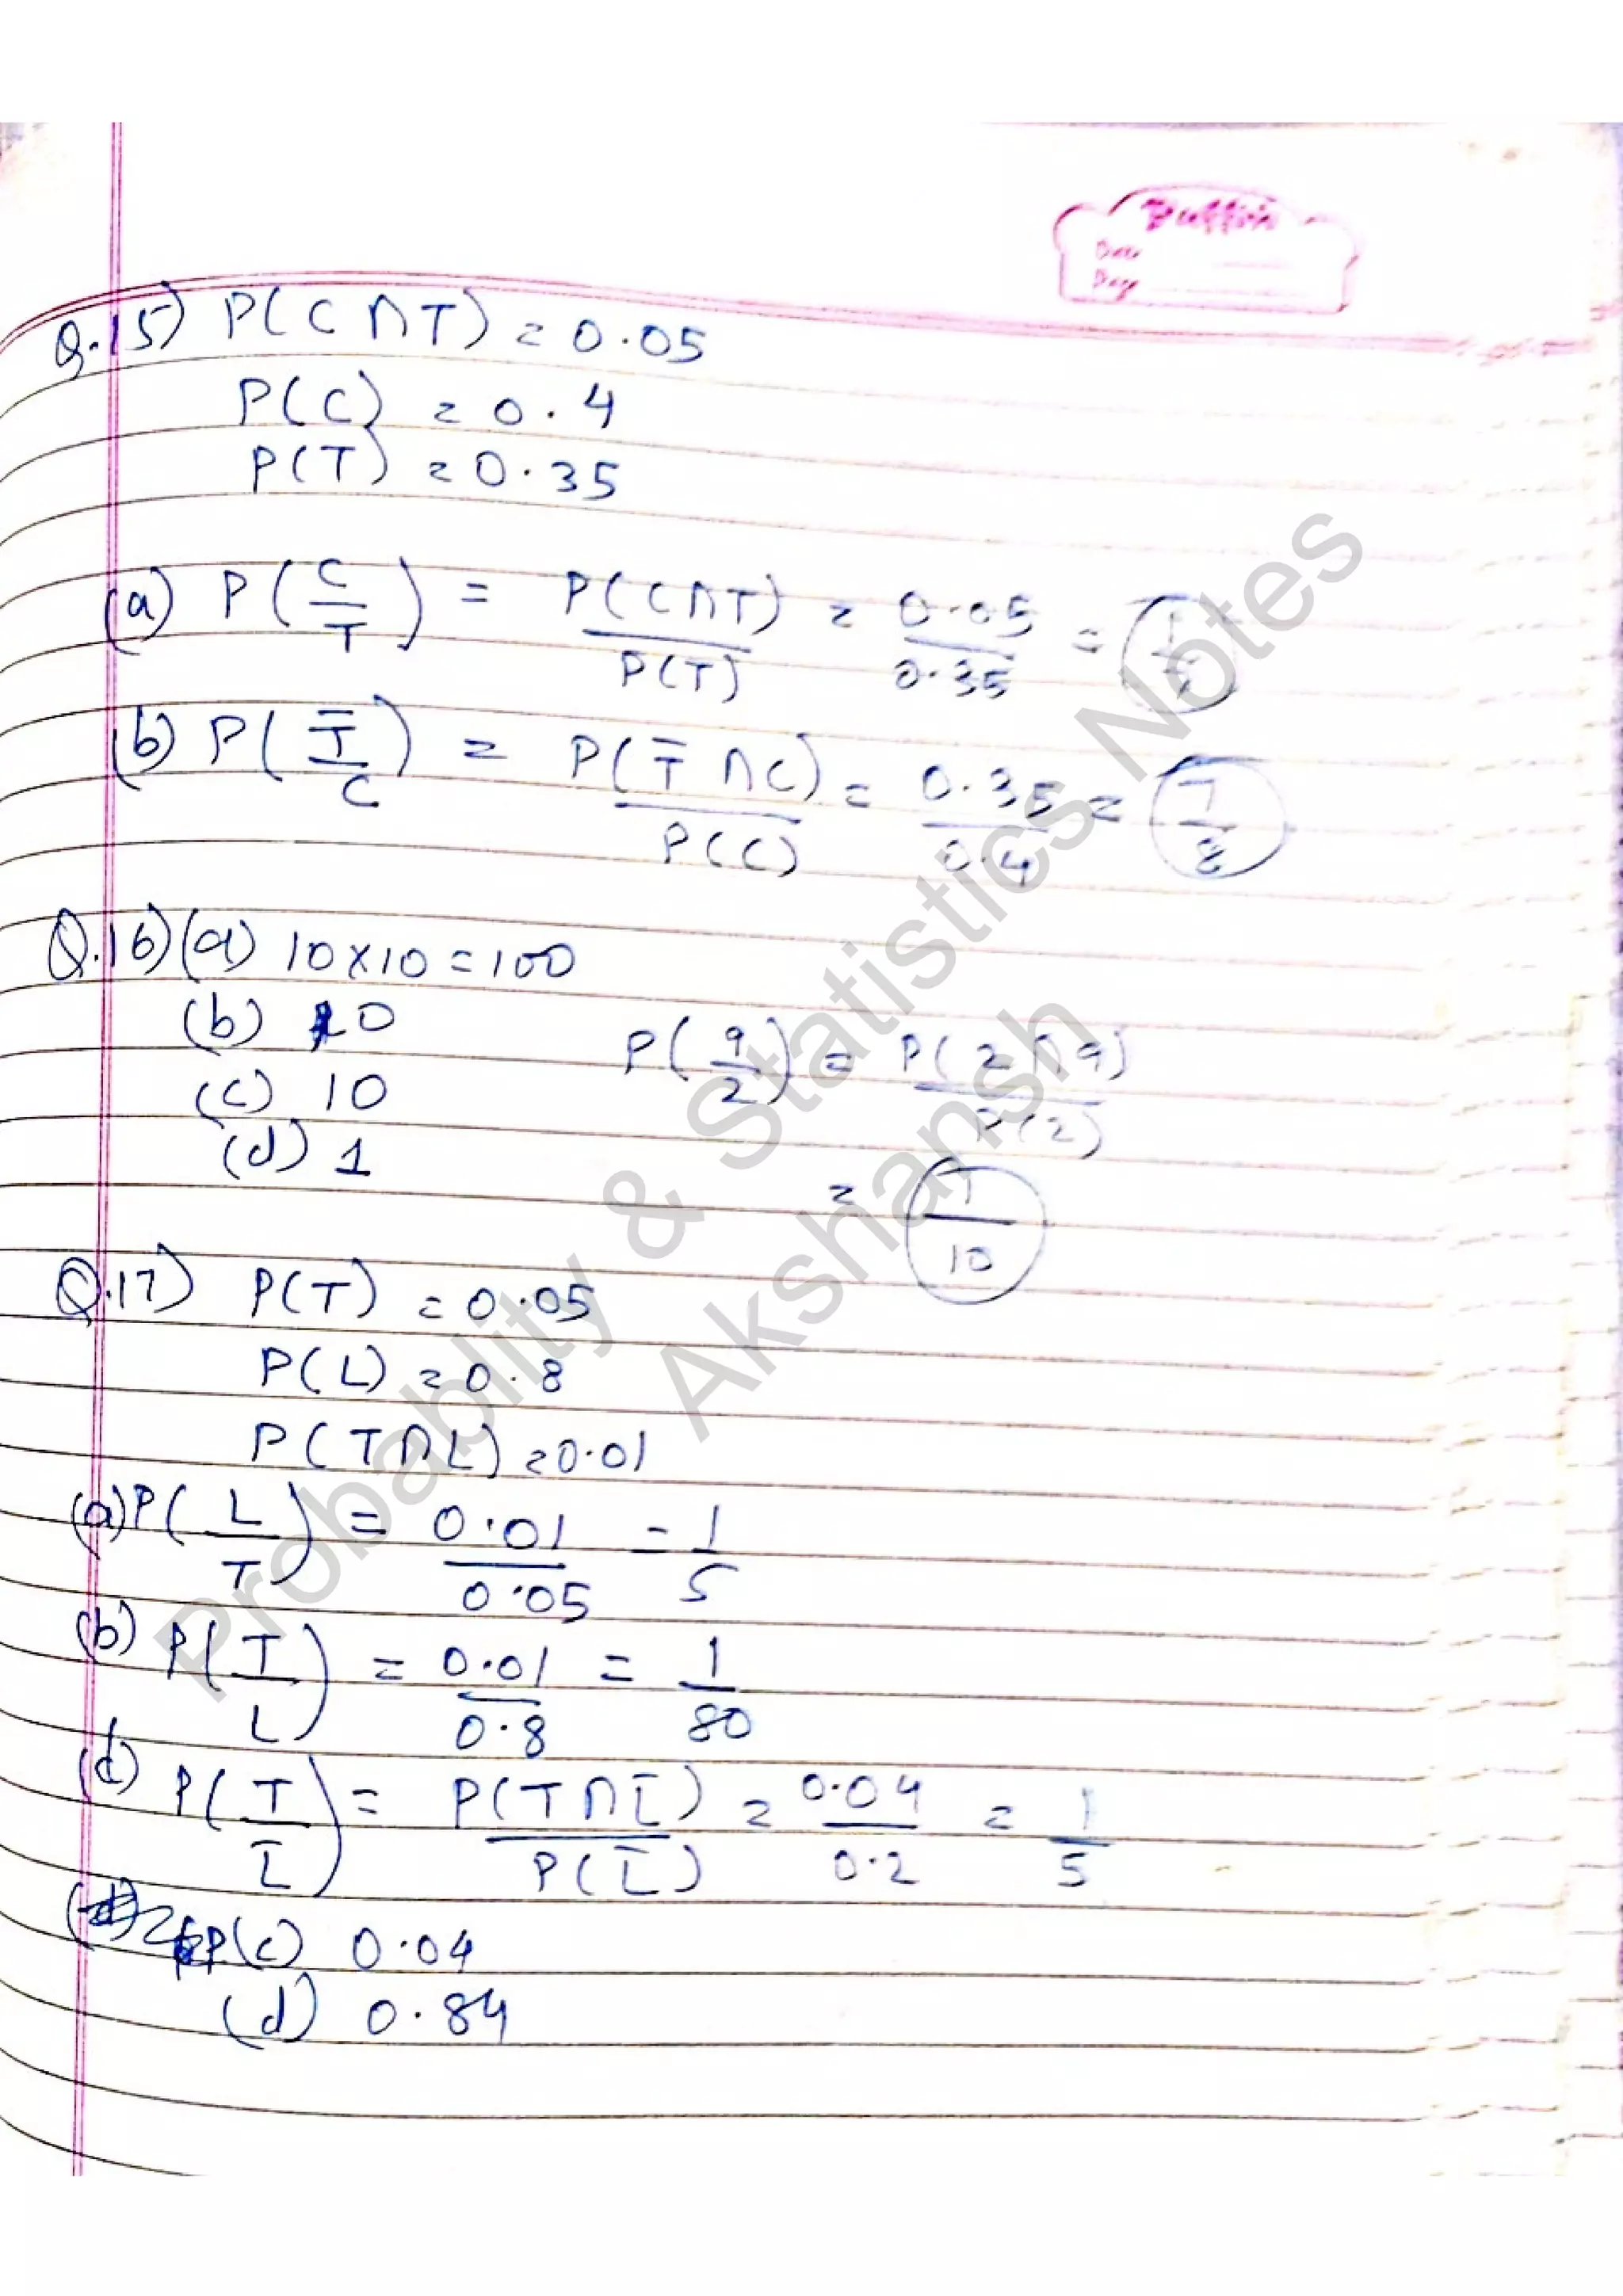 Puffin
Date
Page
Q.15) P(C ∩ T) = 0.05
P(C) = 0.4
P(T) = 0.35
(a) P(C/T) = P(C∩T)/P(T) = 0.05/0.35 = 1/7
(b) P(T̄/C) = P(T̄ ∩ C)/P(C) = 0.35/0.4 = 7/8
Q.16) (a) 10 × 10 = 100
(b) 10
(c) 10
(d) 1
P(9/2) = P(2 ∩ 9)/P(2)
= 1/10
Q.17) P(T) = 0.05
P(L) = 0.8
P(T ∩ L) = 0.01
(a) P(L/T) = 0.01/0.05 = 1/5
(b) P(T/L) = 0.01/0.8 = 1/80
(d) P(T/L̄) = P(T ∩ L̄)/P(L̄) = 0.04/0.2 = 1/5
(c) 0.04
(d) 0.84
Probablity & Statistics Notes
Akshansh